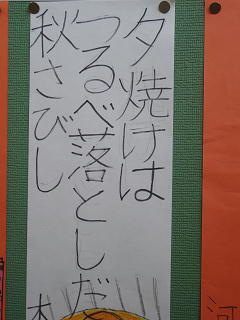 夕焼けは
つるべ落としだ
秋さびし